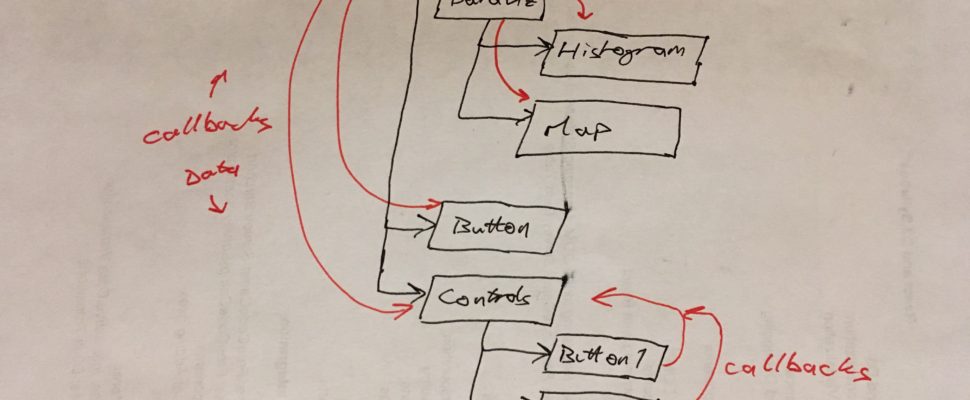 Histogram
Map
callbacks
Data
Button
Controls
Button1
callbacks